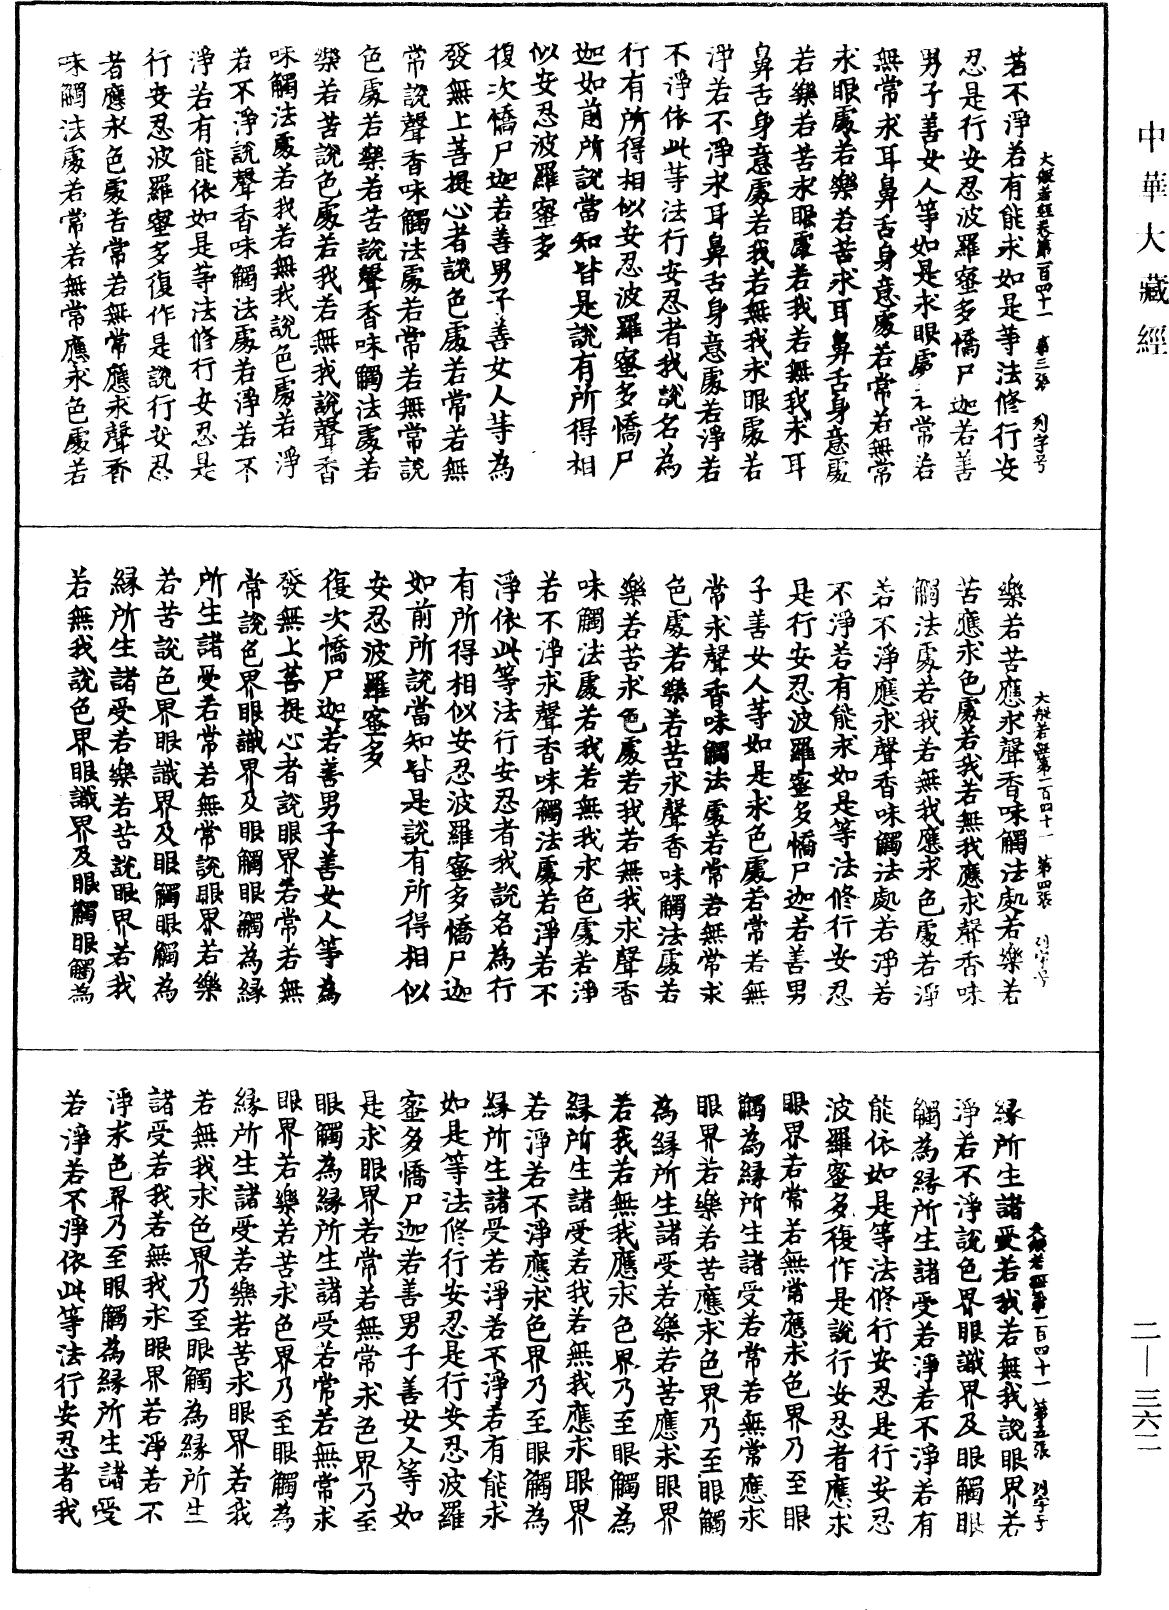 中華大藏經
大般若經卷第一百四十一　第三張　列字号
若不淨若有能求如是等法修行安
忍是行安忍波羅蜜多憍尸迦若善
男子善女人等如是求眼處若常若
無常求耳鼻舌身意處若常若無常
求眼處若樂若苦求耳鼻舌身意處
若樂若苦求眼處若我若無我求耳
鼻舌身意處若我若無我求眼處若
淨若不淨求耳鼻舌身意處若淨若
不淨依此等法行安忍者我說名為
行有所得相似安忍波羅蜜多憍尸
迦如前所說當知皆是說有所得相
似安忍波羅蜜多
復次憍尸迦若善男子善女人等為
發無上菩提心者說色處若常若無
常說聲香味觸法處若常若無常說
色處若樂若苦說聲香味觸法處若
樂若苦說色處若我若無我說聲香
味觸法處若我若無我說色處若淨
若不淨說聲香味觸法處若淨若不
淨若有能依如是等法修行安忍是
行安忍波羅蜜多復作是說行安忍
者應求色處若常若無常應求聲香
味觸法處若常若無常應求色處若
大般若經第一百四十一　第四張　列字号
樂若苦應求聲香味觸法處若樂若
苦應求色處若我若無我應求聲香味
觸法處若我若無我應求色處若淨
若不淨應求聲香味觸法處若淨若
不淨若有能求如是等法修行安忍
是行安忍波羅蜜多憍尸迦若善男
子善女人等如是求色處若常若無
常求聲香味觸法處若常若無常求
色處若樂若苦求聲香味觸法處若
樂若苦求色處若我若無我求聲香
味觸法處若我若無我求色處若淨
若不淨求聲香味觸法處若淨若不
淨依此等法行安忍者我說名為行
有所得相似安忍波羅蜜多憍尸迦
如前所說當知皆是說有所得相似
安忍波羅蜜多
復次憍尸迦若善男子善女人等為
發無上菩提心者說眼界若常若無
常說色界眼識界及眼觸眼觸為緣
所生諸受若常若無常說眼界若樂
若苦說色界眼識界及眼觸眼觸為
緣所生諸受若樂若苦說眼界若我
若無我說色界眼識界及眼觸眼觸為
大般若經第一百四十一　第五張　列字号
緣所生諸受若我若無我說眼界若
淨若不淨說色界眼識界及眼觸眼
觸為緣所生諸受若淨若不淨若有
能依如是等法修行安忍是行安忍
波羅蜜多復作是說行安忍者應求
眼界若常若無常應求色界乃至眼
觸為緣所生諸受若常若無常應求
眼界若樂若苦應求色界乃至眼觸
為緣所生諸受若樂若苦應求眼界
若我若無我應求色界乃至眼觸為
緣所生諸受若我若無我應求眼界
若淨若不淨應求色界乃至眼觸為
緣所生諸受若淨若不淨若有能求
如是等法修行安忍是行安忍波羅
蜜多憍尸迦若善男子善女人等如
是求眼界若常若無常求色界乃至
眼觸為緣所生諸受若常若無常求
眼界若樂若苦求色界乃至眼觸為
緣所生諸受若樂若苦求眼界若我
若無我求色界乃至眼觸為緣所生
諸受若我若無我求眼界若淨若不
淨求色界乃至眼觸為緣所生諸受
若淨若不淨依此等法行安忍者我
二—三六二